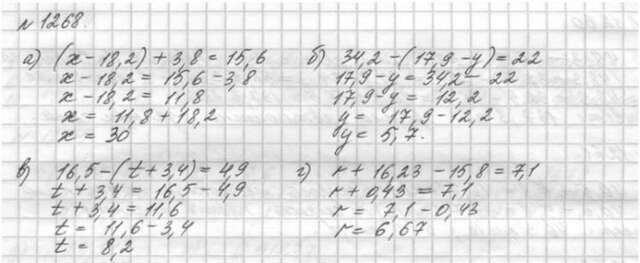 № 1268.
а) (x - 18,2) + 3,8 = 15,6
x - 18,2 = 15,6 - 3,8
x - 18,2 = 11,8
x = 11,8 + 18,2
x = 30
б) 34,2 - (17,9 - y) = 22
17,9 - y = 34,2 - 22
17,9 - y = 12,2
y = 17,9 - 12,2
y = 5,7.
в) 16,5 - (t + 3,4) = 4,9
t + 3,4 = 16,5 - 4,9
t + 3,4 = 11,6
t = 11,6 - 3,4
t = 8,2
г) r + 16,23 - 15,8 = 7,1
r + 0,43 = 7,1
r = 7,1 - 0,43
r = 6,67